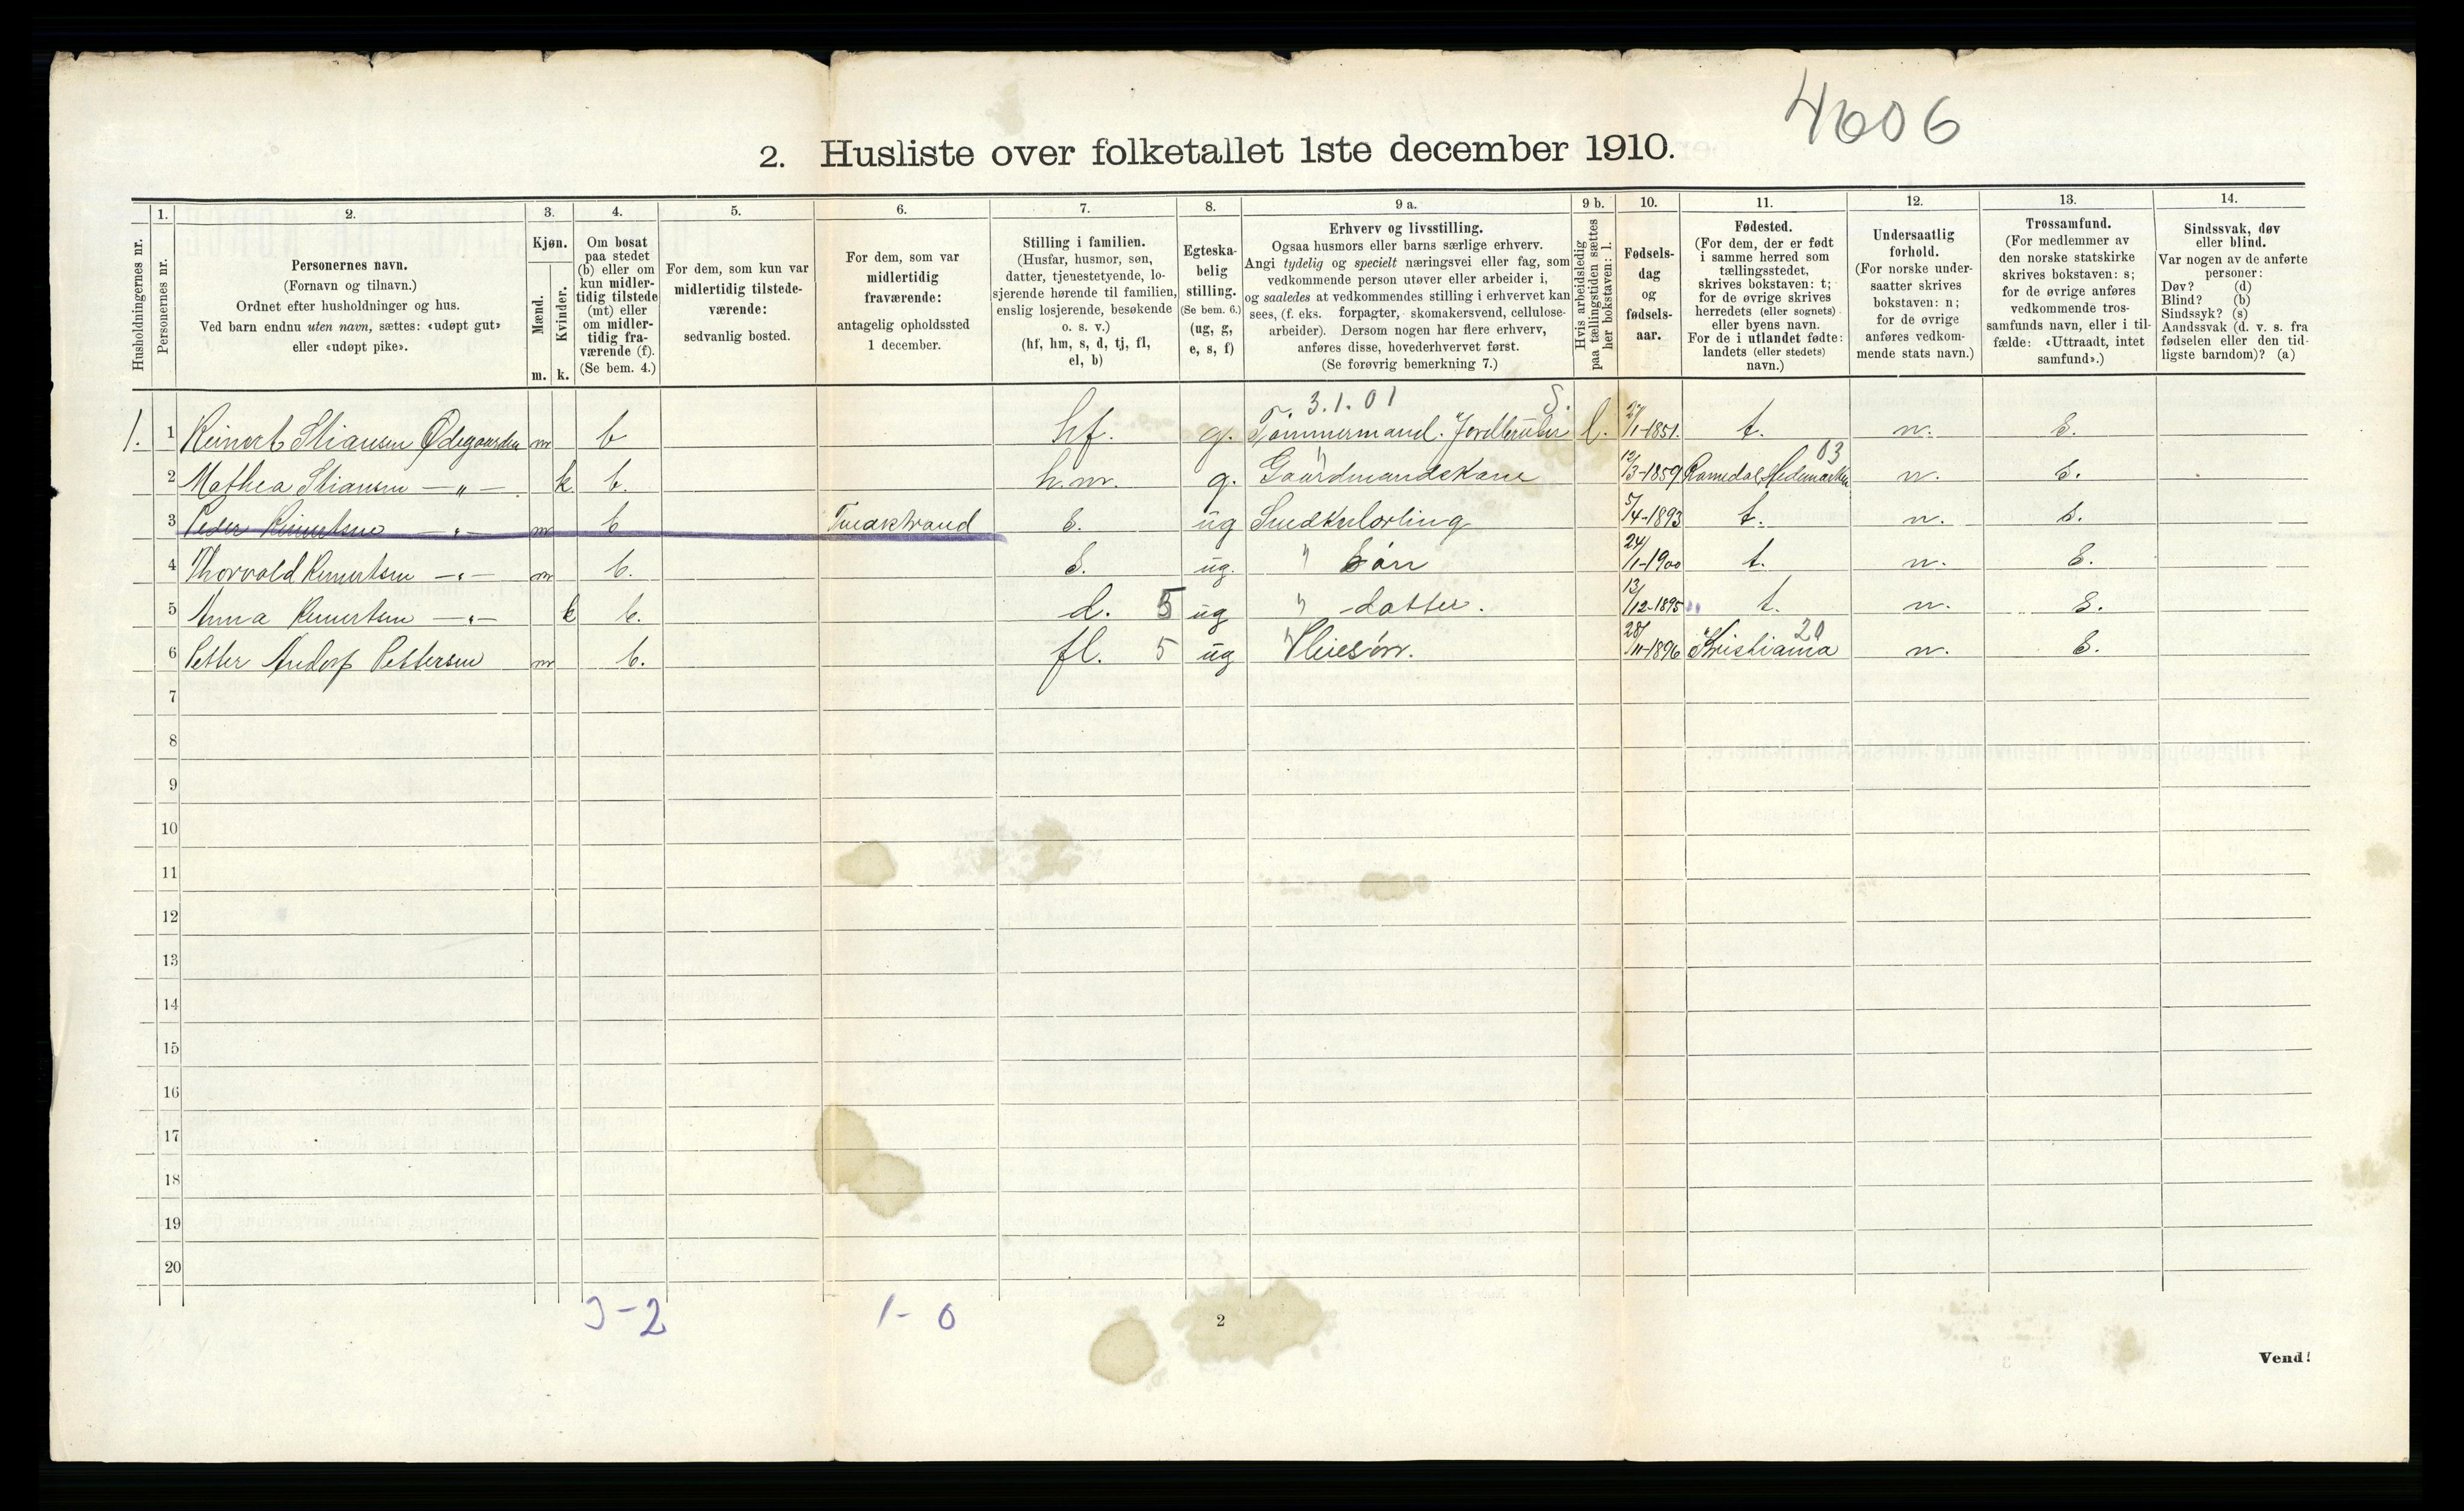 4606
2. Husliste over folketallet 1ste december 1910.
Husholdningernes nr.
1.
Personernes nr.
2.
Personernes navn.
(Fornavn og tilnavn.)
Ordnet efter husholdninger og hus.
Ved barn endnu uten navn, sættes: «udøpt gut»
eller «udøpt pike».
3.
Kjøn.
Mænd.
Kvinder.
m. k.
4.
Om bosat
paa stedet
(b) eller om
kun midler-
tidig tilstede
(mt) eller
om midler-
tidig fra-
værende (f).
(Se bem. 4.)
5.
For dem, som kun var
midlertidig tilstede-
værende:
sedvanlig bosted.
6.
For dem, som var
midlertidig
fraværende:
antagelig opholdssted
1 december.
7.
Stilling i familien.
(Husfar, husmor, søn,
datter, tjenestetyende, lo-
sjerende hørende til familien,
enslig losjerende, besøkende
o. s. v.)
(hf, hm, s, d, tj, fl,
el, b)
8.
Egteska-
belig
stilling.
(Se bem. 6.)
(ug, g,
e, s, f)
9 a.
Erhverv og livsstilling.
Ogsaa husmors eller barns særlige erhverv.
Angi tydelig og specielt næringsvei eller fag, som
vedkommende person utøver eller arbeider i,
og saaledes at vedkommendes stilling i erhvervet kan
sees, (f. eks. forpagter, skomakersvend, cellulose-
arbeider). Dersom nogen har flere erhverv,
anføres disse, hovederhvervet først.
(Se forøvrig bemerkning 7.)
9 b.
Hvis arbeidsledig
paa tællingstiden sættes
her bokstaven: l.
10.
Fødsels-
dag
og
fødsels-
aar.
11.
Fødested.
(For dem, der er født
i samme herred som
tællingsstedet,
skrives bokstaven: t;
for de øvrige skrives
herredets (eller sognets)
eller byens navn.
For de i utlandet fødte:
landets (eller stedets)
navn.)
12.
Undersaatlig
forhold.
(For norske under-
saatter skrives
bokstaven: n;
for de øvrige
anføres vedkom-
mende stats navn.)
13.
Trossamfund.
(For medlemmer av
den norske statskirke
skrives bokstaven: s;
for de øvrige anføres
vedkommende tros-
samfunds navn, eller i til-
fælde: «Uttraadt, intet
samfund».)
14.
Sindssvak, døv
eller blind.
Var nogen av de anførte
personer:
Døv? (d)
Blind? (b)
Sindssyk? (s)
Aandssvak (d. v. s. fra
fødselen eller den tid-
ligste barndom)? (a)
3.1.01 S.
1. 1 Reinert Stiansen Ødegaarden m b hf. g. Tømmermand. Jordbruker l. 1851. t. n. S.
03
2 Mathea Stiansen — „ — k b. h.m. g. Gaardmandskone 12/3-1859 Romedal Hedemarken n. S.
3 Peder Reinertsen — „ — m b Tvedestrand S. ug Smedkulørling 5/4-1893 t. n. S.
4 Thorvald Reinertsen — „ — m b. S. ug. " Søn 24/1-1900 t. n. S.
5 Anna Reinertsen — „ — k b. d. 5 ug " -datter. 13/12-1895 t. n. S.
20
6 Petter Andorf Pettersen m b. fl. 5 ug " Pleiesøn. 28/11-1896 Kristiania n. S.
7
8
9
10
11
12
13
14
15
16
17
18
19
20
3-2 1-0
2
Vend!